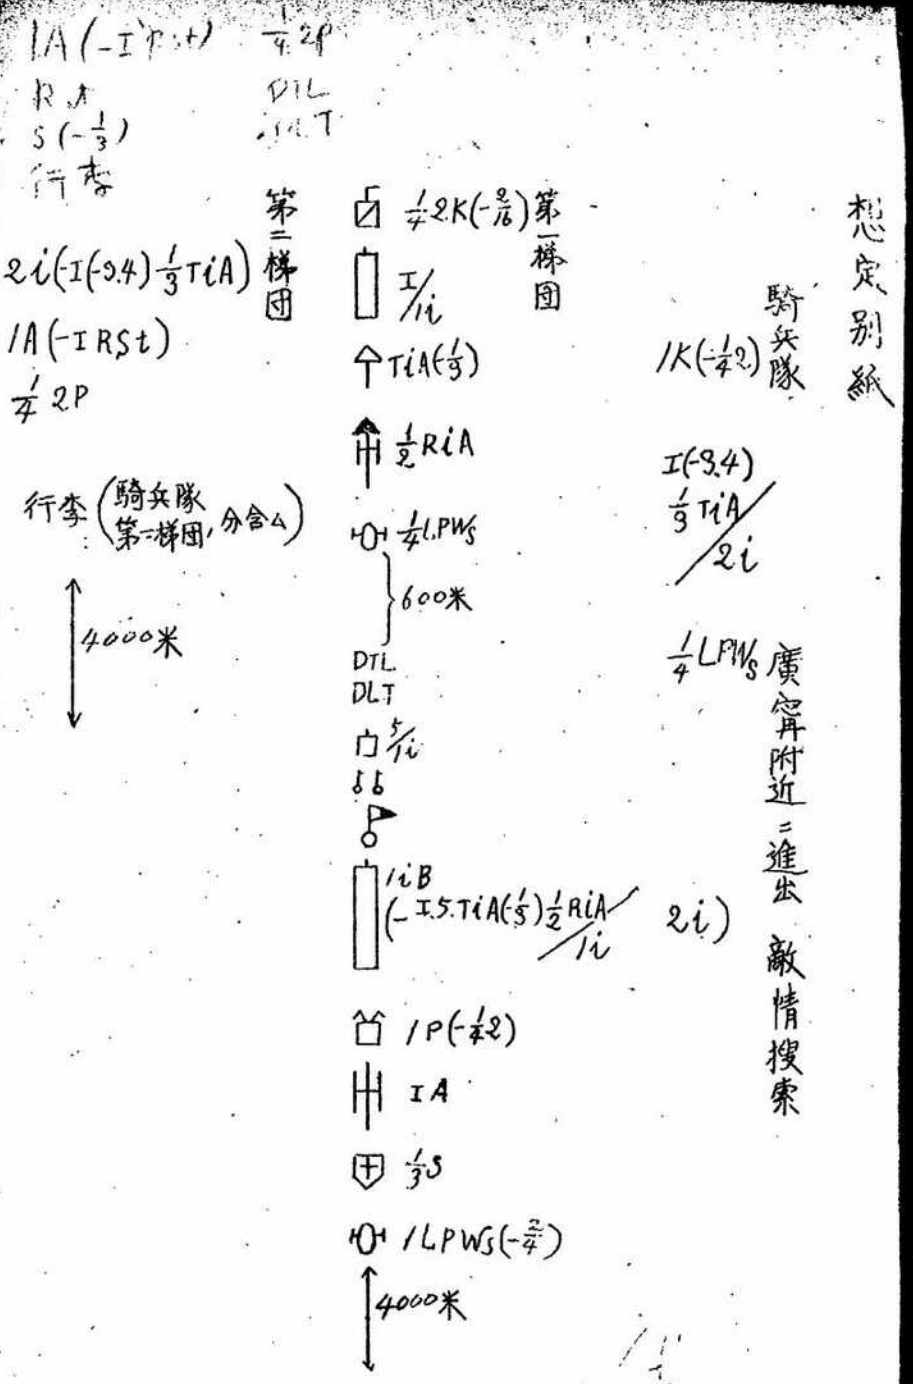 想定別紙
騎兵隊
1K(-1/4 2)
I(-3.4)
1/3 TiA
2i
1/4 LPWs
廣寧附近ニ進出 敵情搜索
第一梯団
1/4 2K(-2/16)
I/1i
TiA(-1/3)
1/2 RiA
1/4 LPWs
600米
DTL
DLT
5/1i
1iB
(-I.5.TiA(-1/3) 1/2 RiA/1i 2i)
1P(-1/4 2)
IA
1/3 S
1LPWs(-2/4)
4000米
第二梯団
2i(-I(-3.4) 1/3 TiA)
1A(-I RSt)
1/4 2P
行李(騎兵隊
第二梯団,分含ム)
4000米
S(-1/3)
行李
1/4 2P